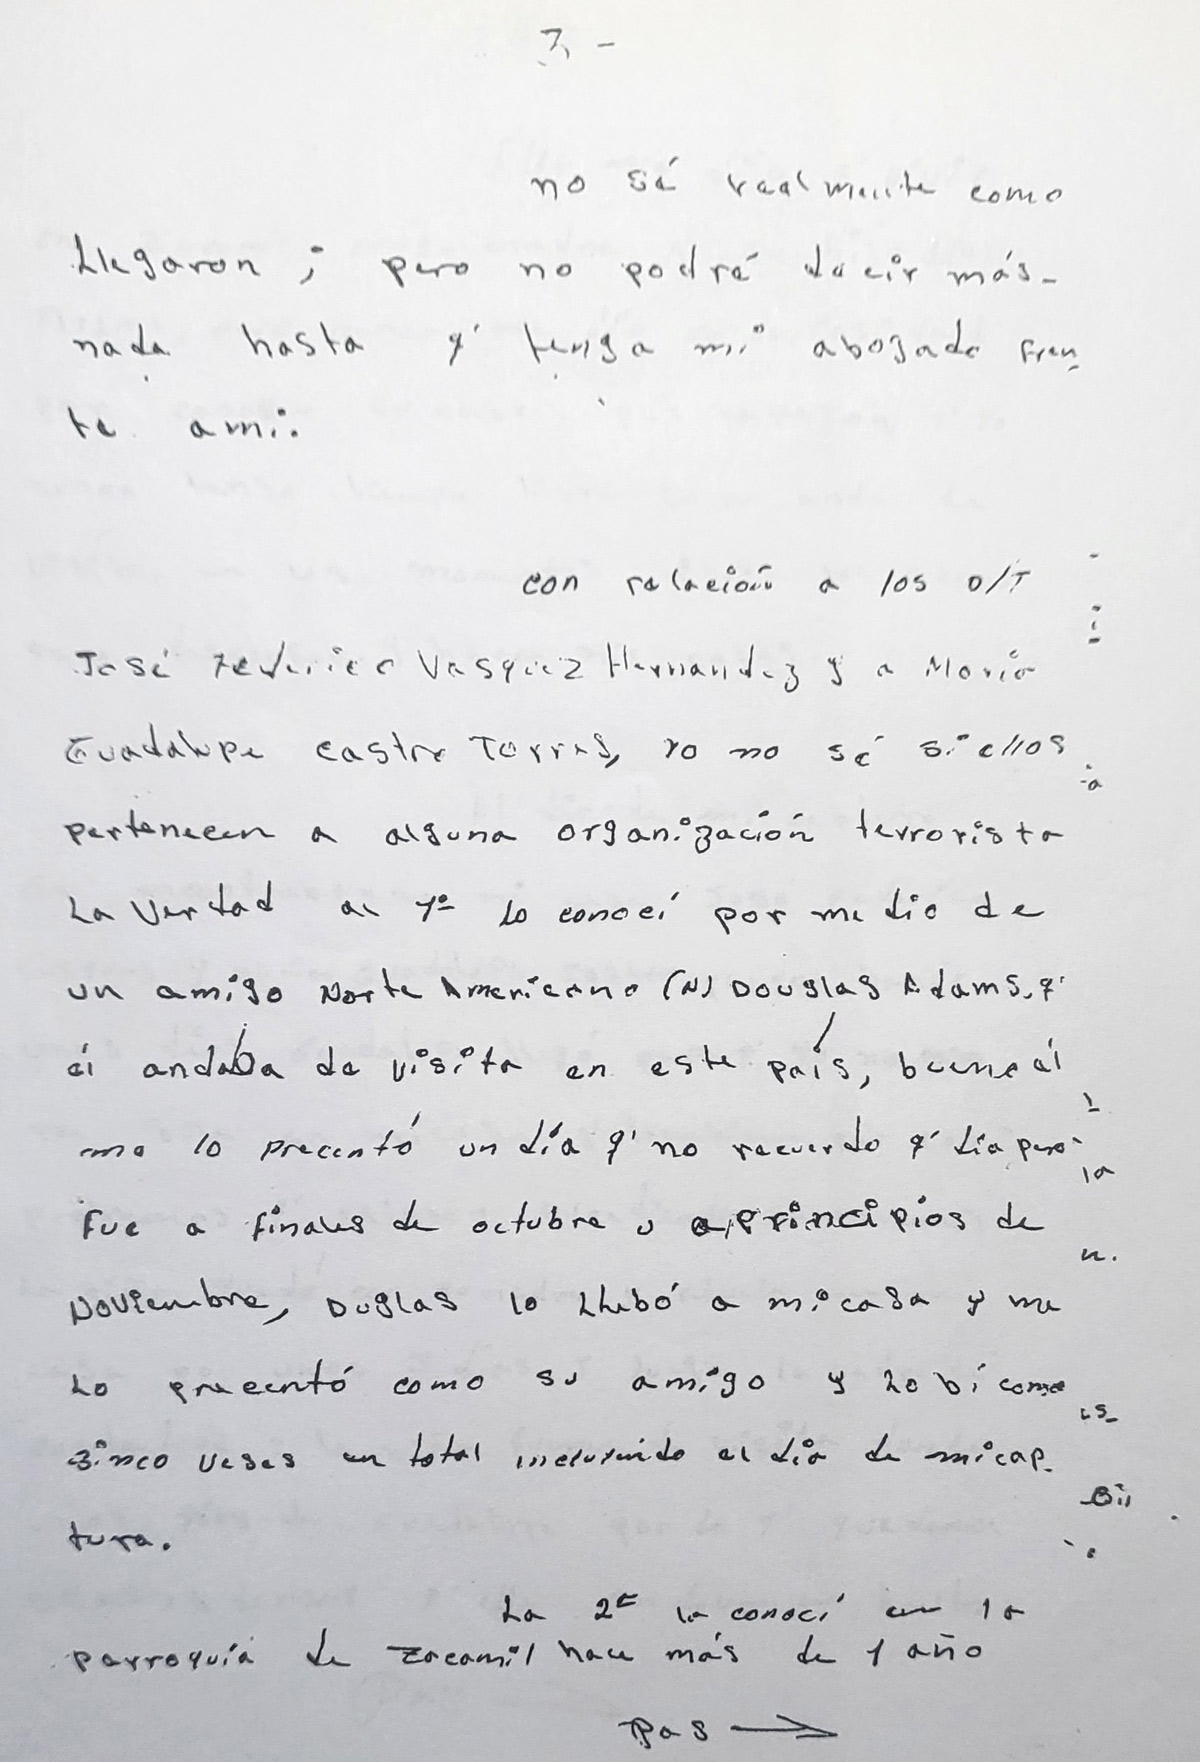 3 -
no sé realmente como
Llegaron ; pero no podré decir más-
nada hasta q' tenga mi abogado fren,
te ami.
con relación a los D/T
José Federico Vasquez Hernandez y a Maria
Guadalupe Castro Torres, yo no sé si ellos
pertenecen a alguna organización terrorista
La Verdad al 1º Lo conocí por medio de
un amigo Norte Americano (N) Douglas Adams, q'
él andaba de visita en este país, bueno él
me lo precentó un día q' no recuerdo q' día pero
fue a finales de octubre o aprincipios de
Noviembre, Duglas lo Llebó a mi casa y me
Lo precentó como su amigo y Lo bí como
sinco veses en total incluyendo el día de micap.
tura.
La 2ª la conocí en la
parroquía de Zacamil hace más de 1 año
Pas →